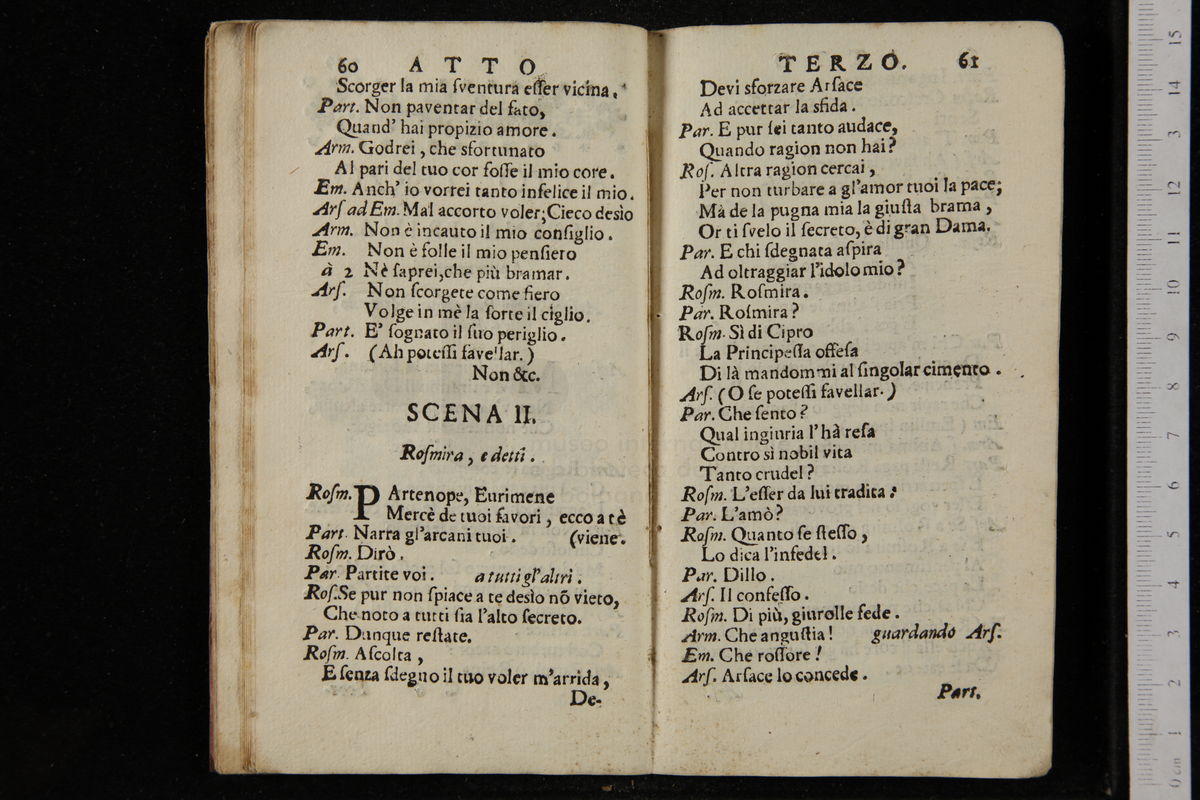 60 ATTO
Scorger la mia ſventura eſſer vicina.
Part. Non paventar del fato,
Quand' hai propizio amore.
Arm. Godrei, che sfortunato
Al pari del tuo cor foſſe il mio core.
Em. Anch' io vorrei tanto infelice il mio.
Arſ ad Em. Mal accorto voler; Cieco desìo
Arm. Non è incauto il mio conſiglio.
Em. Non è folle il mio penſiero
à 2 Nè ſaprei, che più bramar.
Arſ. Non ſcorgete come fiero
Volge in mè la ſorte il ciglio.
Part. E' ſognato il ſuo periglio.
Arſ. (Ah poteſſi favellar.)
Non &c.
SCENA II.
Roſmira, e detti.
Roſm. PArtenope, Eurimene
Mercè de tuoi favori, ecco a tè
Part. Narra gl'arcani tuoi. (viene.
Roſm. Dirò.
Par. Partite voi. a tutti gl'altri.
Roſ. Se pur non ſpiace a te desìo nõ vieto,
Che noto a tutti ſia l'alto ſecreto.
Par. Dunque reſtate.
Roſm. Aſcolta,
E ſenza ſdegno il tuo voler m'arrida,
De-
TERZO. 61
Devi sforzare Arſace
Ad accettar la sfida.
Par. E pur ſei tanto audace,
Quando ragion non hai?
Roſ. Altra ragion cercai,
Per non turbare a gl'amor tuoi la pace;
Mà de la pugna mia la giuſta brama,
Or ti ſvelo il ſecreto, è di gran Dama.
Par. E chi ſdegnata aſpira
Ad oltraggiar l'idolo mio?
Roſm. Roſmira.
Par. Roſmira?
Roſm. Sì di Cipro
La Principeſſa offeſa
Di là mandommi al ſingolar cimento.
Arſ. (O ſe poteſſi favellar.)
Par. Che ſento?
Qual ingiuria l'hà reſa
Contro sì nobil vita
Tanto crudel?
Roſm. L'eſſer da lui tradita.
Par. L'amò?
Roſm. Quanto ſe ſteſſo,
Lo dica l'infedel.
Par. Dillo.
Arſ. Il confeſſo.
Roſm. Di più, giurolle fede.
Arm. Che anguſtia! guardando Arſ.
Em. Che roſſore!
Arſ. Arſace lo concede.
Part.